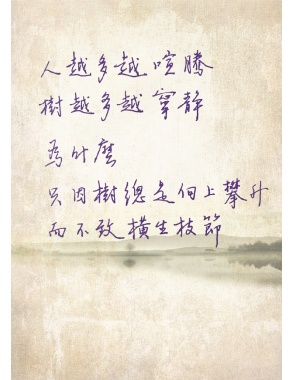 人越多越喧騰
樹越多越寧静
為什麼
只因樹總是向上攀升
而不致橫生枝節